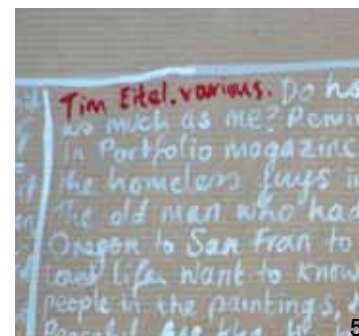 Tim Eitel. various. Do
as much as me? Remi
In Portfolio magazine
the homeless guys i
The old man who had
Oregon to San Fran to
Low Life. Want to know
people in the paintings,
5